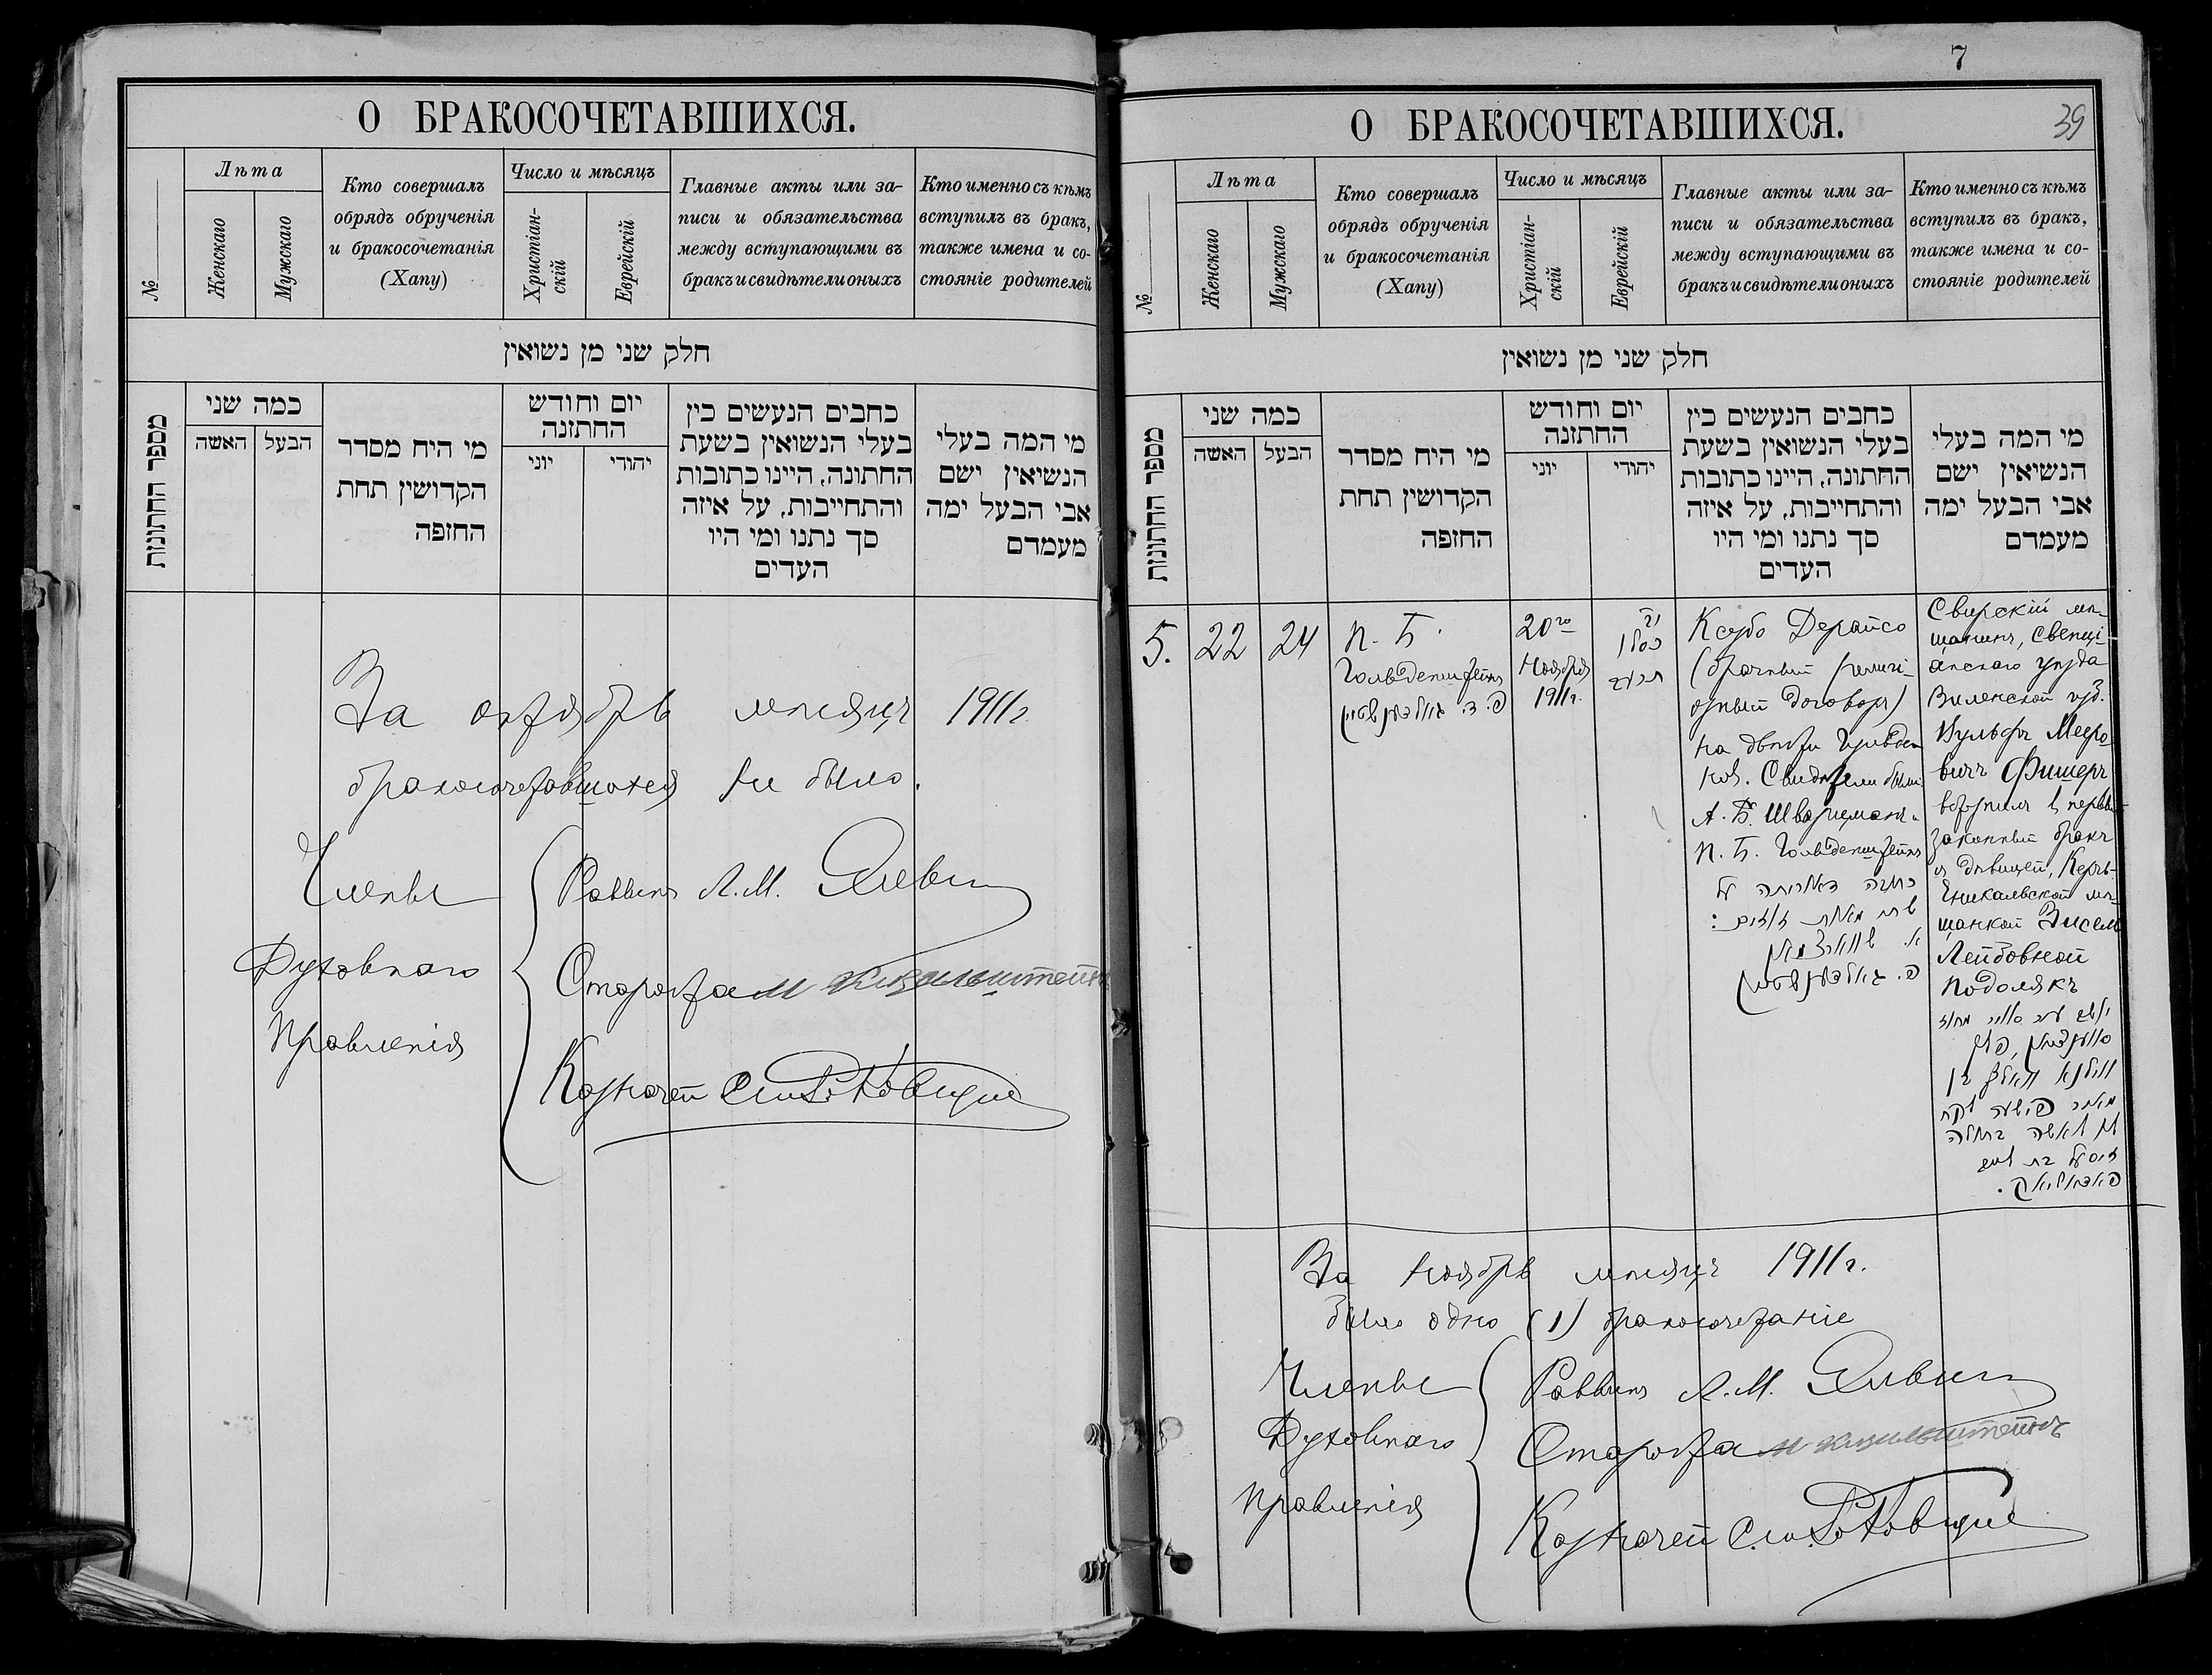 О БРАКОСОЧЕТАВШИХСЯ.
№
Лѣта
Женскаго
Мужскаго
Кто совершалъ
обрядъ обрученія
и бракосочетанія
(Хапу)
Число и мѣсяцъ
Христіан-
скій
Еврейскій
Главные акты или за-
писи и обязательства
между вступающими въ
бракъ и свидѣтели оныхъ
Кто именно съ кѣмъ
вступилъ въ бракъ,
также имена и со-
стояніе родителей
חלק שני מן נשואין
מספר החתונות
כמה שני
האשה
הבעל
מי היח מסדר
הקדושין תחת
החופה
יום וחודש
החתונה
יוני
יהודי
כחבים הנעשים כין
בעלי הנשואין בשעת
החתונה, היינו כתובות
והתחייבות, על איזה
סך נתנו ומי היו
העדים
מי המה בעלי
הנשיאין ישם
אבי הבעל ימה
מעמדם
За октябрь мѣсяцъ 1911г.
бракосочетавшихся не было.
Члены
Духовнаго
Правленія
Раввинъ Л.М.
Староста М
Казначей
7
39
О БРАКОСОЧЕТАВШИХСЯ.
№
Лѣта
Женскаго
Мужскаго
Кто совершалъ
обрядъ обрученія
и бракосочетанія
(Хапу)
Число и мѣсяцъ
Христіан-
скій
Еврейскій
Главные акты или за-
писи и обязательства
между вступающими въ
бракъ и свидѣтели оныхъ
Кто именно съ кѣмъ
вступилъ въ бракъ,
также имена и со-
стояніе родителей
חלק שני מן נשואין
מספר החתונות
כמה שני
האשה
הבעל
מי היח מסדר
הקדושין תחת
החופה
יום וחודש
החתונה
יוני
יהודי
כחבים הנעשים כין
בעלי הנשואין בשעת
החתונה, היינו כתובות
והתחייבות, על איזה
סך נתנו ומי היו
העדים
מי המה בעלי
הנשיאין ישם
אבי הבעל ימה
מעמדם
5.
22
24
П. Б.
Гольденштейнъ
פ. ד. גאלדענשטיין
20го
Ноября
1911г.
כסלו
תרעב
Ксубо Дерайсо
(брачный религі-
озный договоръ)
на двѣсти
Свидѣтели были
А. Б. Шварцманъ и
П. Б. Гольденштейнъ
כתובה דאורייתא על
סך מאתים זוזים:
א. שווארצמאן
פ. גאלדענשטיין
Свирскій мѣ-
щанинъ, Свенці-
анскаго уѣзда
Виленской губ.
Вульфъ Мееро-
вичъ Фишеръ
вступилъ въ первый
законный бракъ
съ дѣвицей, Керчь-
Еникальской мѣ-
щанкой Зисель
Лейбовной
Подолякъ
ווילנא וואלף בן
מאיר פישער לקח
לו לאשה בתולה
זיסעל בת לייב
פאדאליאק.
За ноябрь мѣсяцъ 1911г.
было одно (1) бракосочетаніе
Члены
Духовнаго
Правленія
Раввинъ Л.М.
Староста М
Казначей